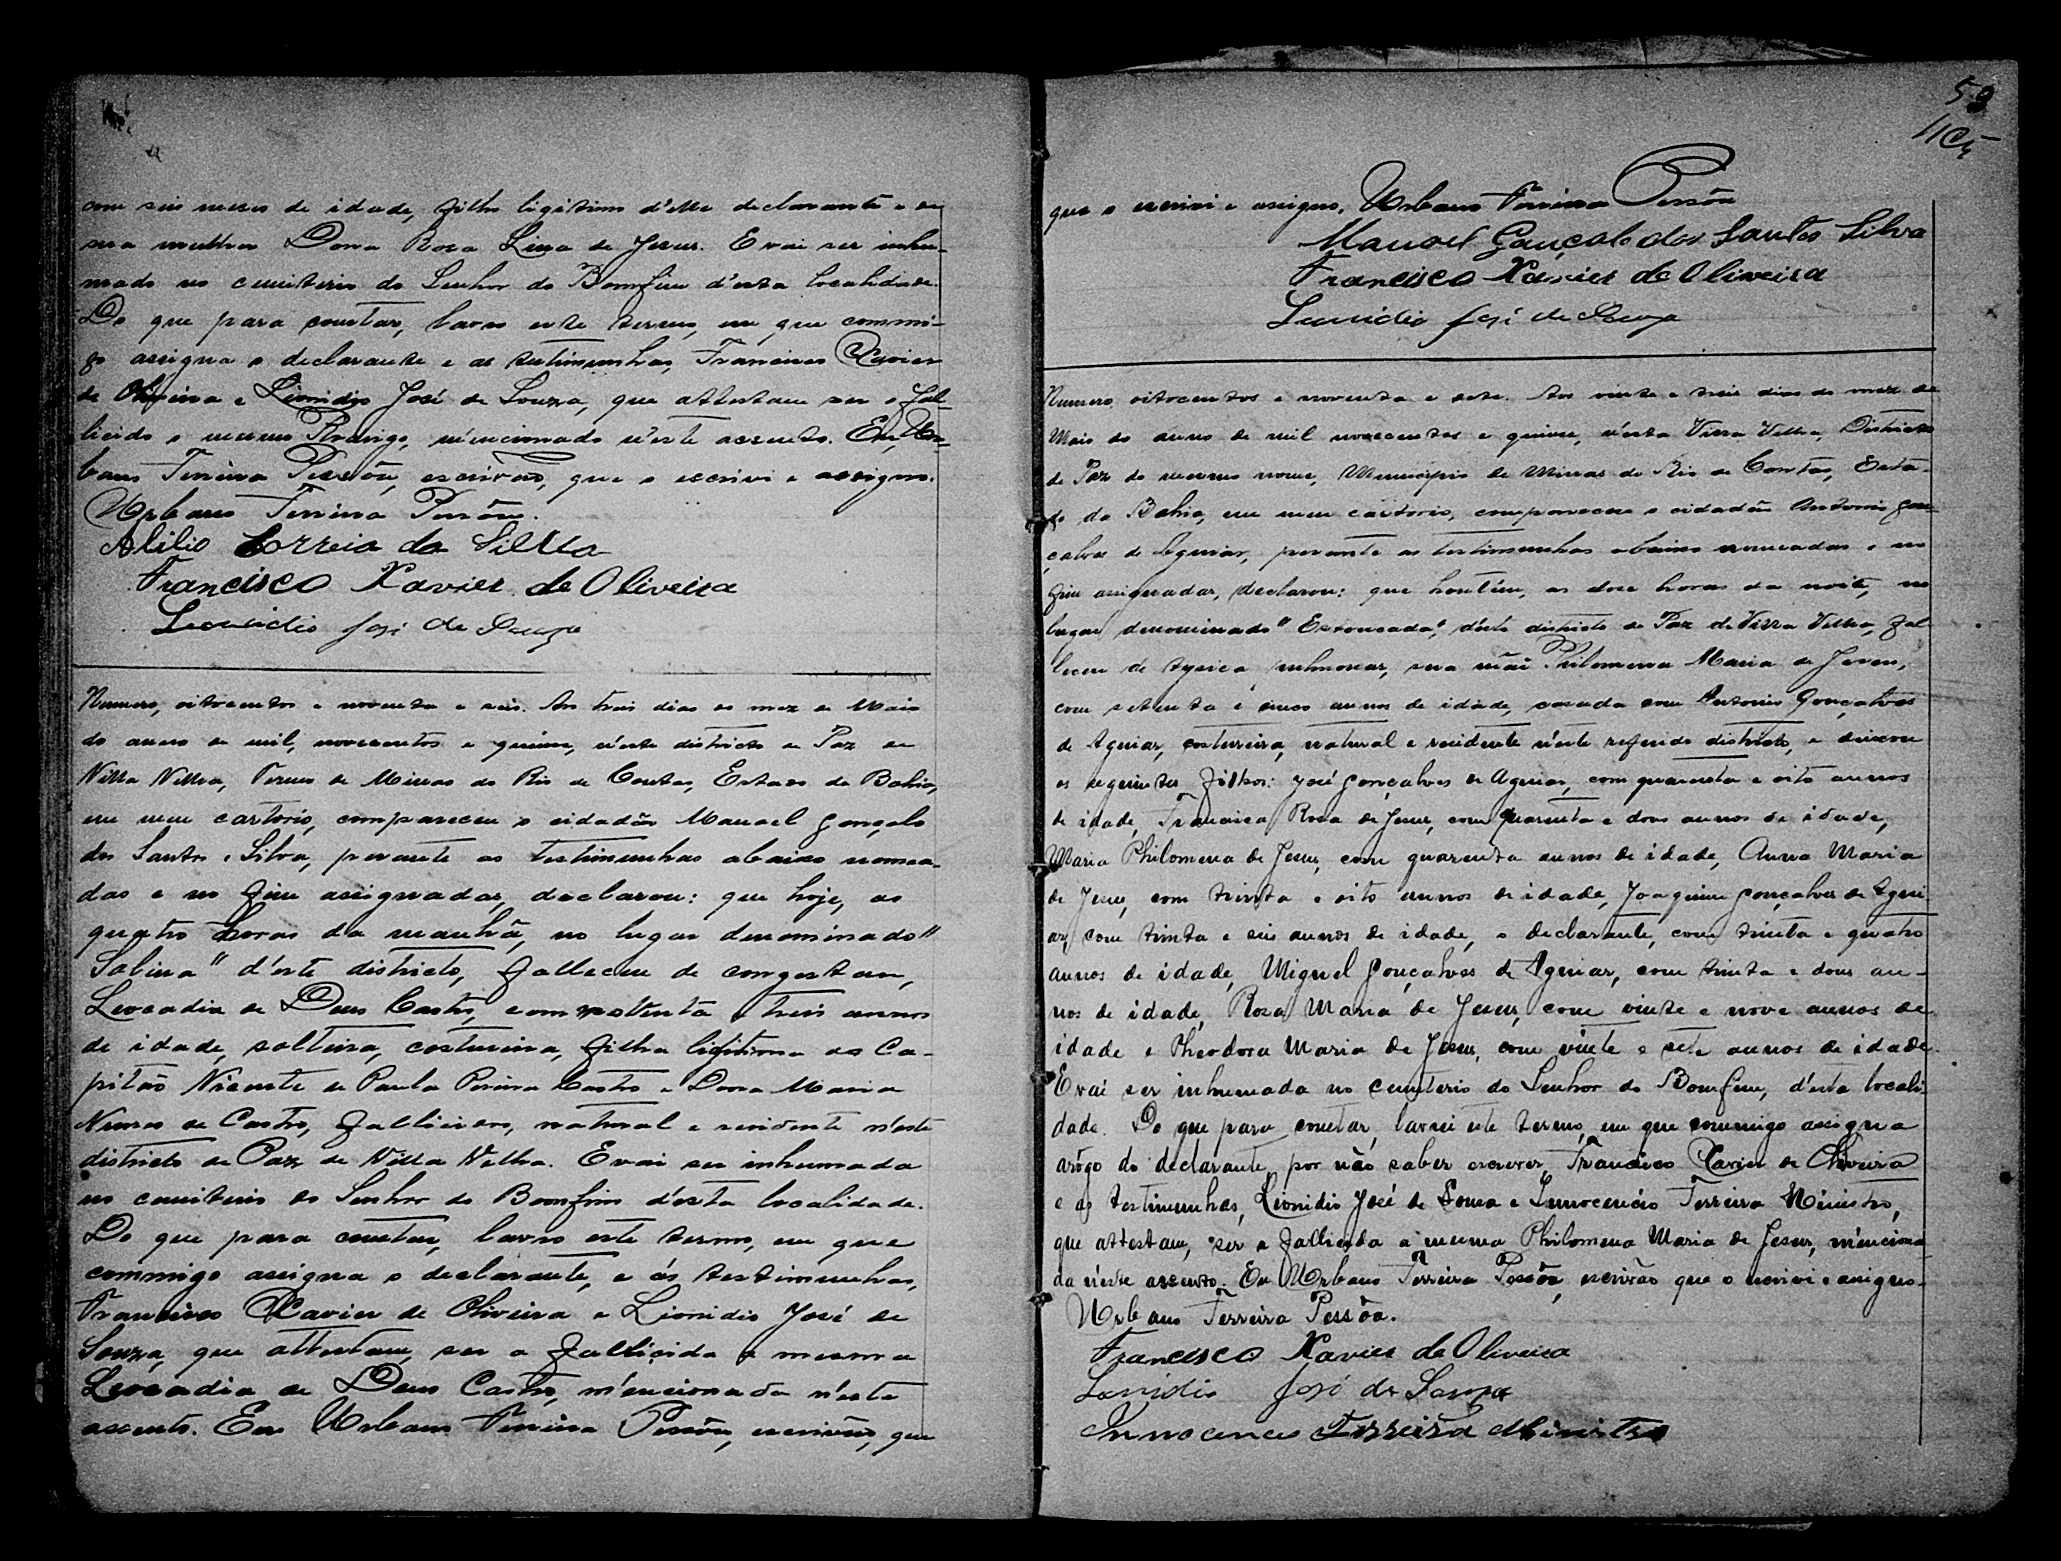 com seis mezes de idade, filho legitimo d'elle declarante e de
sua mulher Dona Rosa Lina de Jesus. E vai ser inhu-
mado no cemiterio do Senhor do Bomfim d'esta localidade.
Do que para constar, lavro este termo, em que commi-
go assigna o declarante e as testimunhas, Francisco Xavier
de Oliveira e Lionidio José de Souza, que attestam ser o fal-
licido o mesmo Rodrigo, mencionado n'este assento. Eu, Ur-
bano Ferreira Pessôa, escrivão, que o escrivi e assigno.
Urbano Ferreira Pessôa.
Alilio Correia da Silva
Francisco Xavier de Oliveira
Leonidio José de Souza
Numero, oitocentos e noventa e seis. Aos treis dias do mez de Maio
do anno de mil, novecentos e quinze, n'este districto de Paz de
Villa Velha, Termo de Minas do Rio de Contas, Estado da Bahia,
em meu cartorio, compareceu o cidadão Manoel Gonçalo
dos Santos Silva, perante as testimunhas abaixo nomea-
das e no fim assignadas, declarou: que hoje, as
quatro horas da manhã, no lugar denominado "
Sabina" d'este districto, falleceu de congestam,
Leocadia de Deus Castro, com settenta e treis annos
de idade, solteira, costureira, filha ligitima do Ca-
pitão Vicente de Paula Pereira Castro e Dona Maria
Nunes de Castro, fallicidos, natural e residente n'este
districto de Paz de Villa Velha. E vai ser inhumada
no cemiterio do Senhor do Bomfim d'esta localidade.
Do que para constar, lavro este termo, em que
commigo assigna o declarante, e ás testimunhas,
Francisco Xavier de Oliveira e Lionidio José de
Souza, que attestam, ser a fallicida a mesma
Leocadia de Deus Castro, mencionada n'este
assento. Eu Urbano Ferreira Pessôa, escrivão, que
59
que o escrivi e assigno. Urbano Ferreira Pessôa
Manoel Gonçalo dos Santos Silva
Francisco Xavier de Oliveira
Leonidio José de Souza
Numero, oitocentos e noventa e sete. Aos vinte e treis dias do mez de
Maio do anno de mil novecentos e quinze, n'esta Villa Velha, Districto
de Paz do mesmo nome, Municipio de Minas do Rio de Contas, Esta-
do da Bahia, em meu cartorio, compareceu o cidadão Antonio Gon-
çalves de Aguiar, perante as testimunhas abaixo nomeadas e no
fim assignadas, declarou: que hontém, as doze horas da noite, no
lugar denominado "Estoucada", d'este districto de Paz de Villa Velha, fal
leceu de tysica pulmonar, sua mãe Philomena Maria de Jesus,
com setenta e cinco annos de idade, casada com Antonio Gonçalves
de Aguiar, costureira, natural e residente n'este referido districto, e deixou
os seguintes filhos: José Gonçalves de Aguiar, com quarenta e oito annos
de idade, Francisca Rosa de Jesus, com quarenta e dous annos de idade,
Maria Philomena de Jesus, com quarenta annos de idade, Anna Maria
de Jesus, com trinta e oito annos de idade, Joaquim Gonçalves de Agui
ar, com trinta e seis annos de idade, o declarante, com trinta e quatro
annos de idade, Miguel Gonçalves de Aguiar, com trinta e dous an-
nos de idade, Rosa Maria de Jesus, com vinte e nove annos de
idade e Theodora Maria de Jesus, com vinte e sete annos de idade.
E vai ser inhumada no cemiterio do Senhor do Bomfim, d'esta locali-
dade. Do que para constar, lavrei este termo, em que commigo assigna
arôgo do declarante, por não saber escrever, Francisco Xavier de Oliveira
e as testimunhas, Lionidio José de Souza e Innocencio Ferreira Ministro,
que attestam, ser a fallicida a mesma Philomena Maria de Jesus, menciona-
da n'este assento. Eu Urbano Ferreira Pessôa, escrivão que o escrivi e assigno.
Urbano Ferreira Pessôa.
Francisco Xavier de Oliveira
Leonidio José de Souza
Innocencio Ferreira Ministro